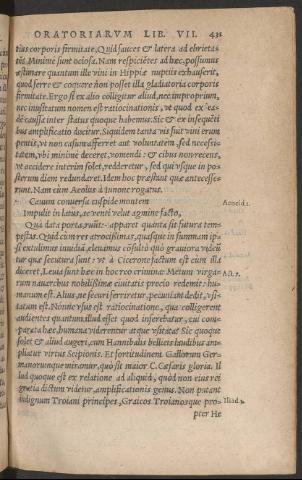 ORATORIARVM LIB. VII. 431
tius corporis firmitate. Quid fauces & latera ad ebrietatem?
tis? Minime sunt ociosa. Nam respicietes ad hæc, possumus
æstimare quantum ille vini in Hippiæ nuptiis exhauserit,
quod ferre & coquere non posset illa gladiatoria corporis
firmitate. Ergo si ex alio colligitur aliud, nec improprium,
nec inusitatum nomen est ratiocinationis, vt quod ex eadē
causa inter status quoque habemus. Sic & ex insequētibus
amplificatio ducitur. Siquidem tanta vis fuit vini erumpentis,
vt non casum afferret aut voluntatem, sed necessitatem,
vbi minime deceret, vomendi: & cibus non recens,
vt accidere interim solet, redderetur, sed qui vsque in posterum
diem redundaret. Idem hoc præstant quæ antecesserunt.
Nam cum Aeolus à Iunone rogatus,
Cauum conuersa cuspide montem Aeneid. 1.
Impulit in latus, ac venti velut agmine facto,
Qua data porta, ruūt: apparet quanta sit futura tempestas.
Quid? cum res atrocissimas, quasque in summam ipsi
extulimus inuidiā, eleuamus cōsultò quò grauiora videātur
quæ secutura sunt: vt à Cicerone factum est cùm illa
diceret, Leuia sunt hæc in hoc reo crimina: Metum virgarum Act. 7.
nauarchus nobilissimæ ciuitatis precio redemit: humanum
est. Alius, ne securi feriretur, pecuniam dedit, vsitatum
est. Nonne vsus est ratiocinatione, qua colligerent
audientes quantum illud esset quod inferebatur, cui comparata
hæc, humana viderentur atque vsitata? Sic quoque
solet & aliud augeri, cum Hannibalis bellicis laudibus ampliatur
virtus Scipionis. Et fortitudinem Gallorum Germanorunque
miramur, quò sit maior C. Cæsaris gloria. Illud
quoque est ex relatione ad aliquid, quòd non eius rei
gratia dictum videtur, amplificationis genus. Non putant
indignum Troiani principes, Graios Troianosque pro- Iliad. 3.
pter He